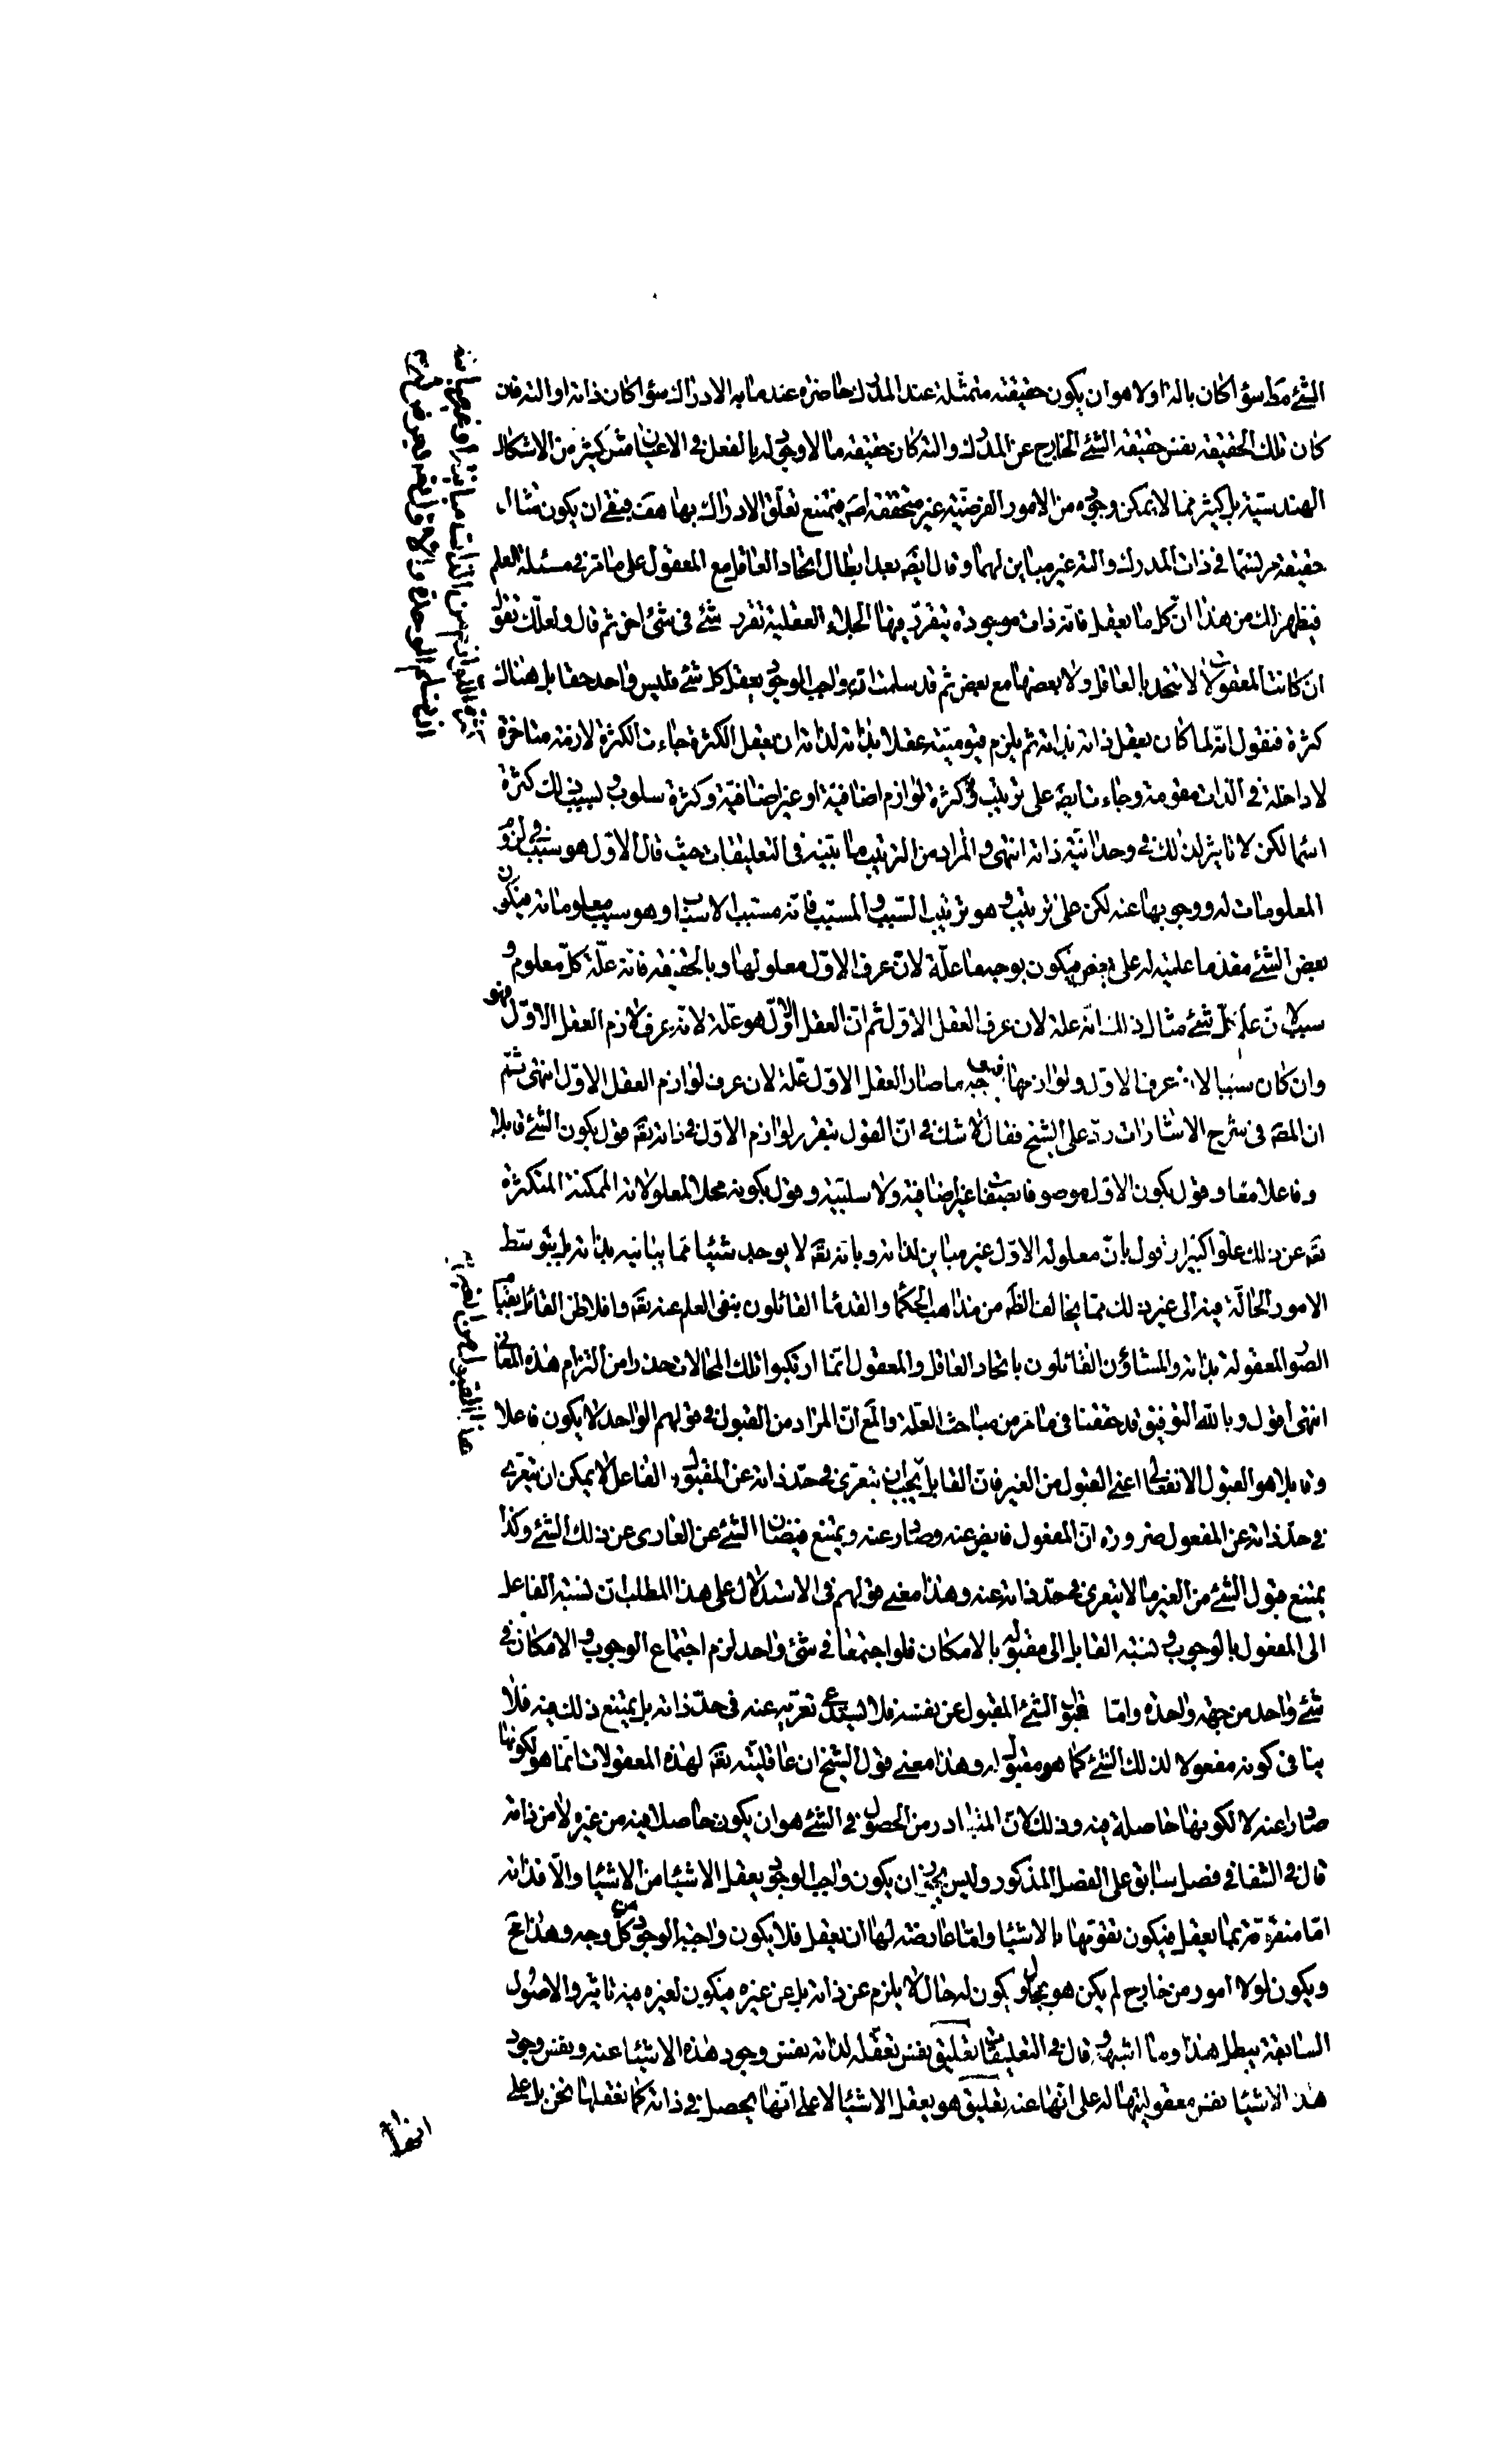 الشئ مطلقا سواء كان بالة او لا هو ان يكون حقيقته متمثلة عند المدرك حاضرة عند ما به الادراك سواء كان ذاته او الته فان
كان تلك الحقيقة نفس حقيقة الشئ الخارج عن المدرك والته كان حقيقة ما لا وجود له بالفعل فى الاعيان مثل كثير من الاشكال
الهندسية بل كثير مما لا يمكن وجوده من الامور الفرضية غير متحققة اصلا فيمتنع تعلق الادراك بها هف فبقى ان يكون مثال
حقيقته مرتسما فى ذات المدرك والته غير مباين لهما وقال ايضه بعد ابطال اتحاد العاقل مع المعقول على ما مر فى مسئلة العلم
فيظهر لك من هذا ان كل ما يعقل فانه ذات موجودة يتقرر فيها الجلايا العقلية تقرر شئ فى شئ اخر ثم قال ولعلك تقول
ان كانت المعقولات لا يتحد بالعاقل ولا بعضها مع بعض ثم قد سلمت ان واجب الوجود يعقل كل شئ فليس واحد حقا بل هناك
كثرة فنقول انه لما كان يعقل ذاته بذاته ثم يلزم قيوميته عقلا بذاته لذاته ان يعقل الكثرة جاءت الكثرة لازمة متاخرة
لا داخلة فى الذات مقومة وجاءت ايضه على ترتيب وكثرة لوازم اضافية او غير اضافية وكثرة سلوب وبسبب ذلك كثرة
اسما لكن لا تاثير لذلك فى وحدانية ذاته انتهى والمراد من الترتيب ما بينه فى التعليقات حيث قال الاول هو سبب فى لزوم
المعلومات له ووجوبها عنه لكن على ترتيب وهو ترتيب السبب والمسبب فانه مسبب الاسباب وهو سبب معلوماته فيكون
بعض الشئ مقدما علميته له على بعض فيكون بوجه ما علة لان عرف الاول معلولها وبالحقيقة فانه علة كل معلوم و
سبب لان علم كل شئ مثال ذلك انه علة لان عرف العقل الاول ثم ان العقل الاول هو علة لانه عرف لازم العقل الاول فهو
وان كان سببا لان عرف الاول ولوازمها فبوجه ما صار العقل الاول علة لان عرف لوازم العقل الاول انتهى ثم
ان المصه فى شرح الاشارات رد على الشيخ فقال لا شك فى ان القول بتقرر لوازم الاول فى ذاته تعه قول بكون الشئ قابلا
وفاعلا معا وقول بكون الاول موصوفا بصفات غير اضافية ولا سلبية وقول بكونه محلا لمعلولاته الممكنة المتكثرة
تعه عن ذلك علوا كبيرا وقول بان معلوله الاول غير مباين لذاته وبانه تعه لا يوجد شيئا مما يباينه بذاته بل بتوسط
الامور الحالة فيه الى غير ذلك مما يخالف الظه من مذاهب الحكما والقدما القائلون بنفى العلم عنه تعه وافلاطن القائل بقيام
الصور المعقولة بذاته والمشاؤن القائلون باتحاد العاقل والمعقول انما ارتكبوا تلك المحالات حذرا من التزام هذه المعانى
انتهى اقول وبالله التوفيق قد حققنا فى ما مر من مباحث العلة والمع ان المراد من القبول فى قولهم الواحد لا يكون فاعلا
وقابلا هو القبول الانفعالى اعنى القبول من الغير فان القابل يجب ان يتعرى فى حد ذاته عن المقبول والفاعل لا يمكن ان يتعرى
فى حد ذاته عن المفعول ضرورة ان المفعول فايض عنه وصادر عنه ويمتنع فيضان الشئ عن العارى عن ذلك الشئ وكذا
يمتنع قبول الشئ من الغير ما لا يتعرى فى حد ذاته عنه وهذا معنى قولهم فى الاستدلال على هذا المطلب ان نسبة الفاعل
الى المفعول بالوجوب ونسبة القابل الى مقبوله بالامكان فلو اجتمعا فى شئ واحد لزم اجتماع الوجوب والامكان فى
شئ واحد من جهة واحدة واما قبول الشئ المقبول عن نفسه فلا يستدعى تعريه عنه فى حد ذاته بل يمتنع ذلك فيه فلا
ينافى كونه مفعولا لذلك الشئ كما هو مقبول له وهذا معنى قول الشيخ ان عاقليته تعه لهذه المعقولات انما هو لكونها
صادرا عنه لا لكونها حاصلة فيه وذلك لان المتبادر من الحصول فى الشئ هو ان يكون حاصلا فيه من غيره لا من ذاته
قال فى الشفا فى فصل سابق على الفصل المذكور وليس يجوز ان يكون واجب الوجود يعقل الاشيا من الاشيا والا فذاته
اما متقومة بما يعقل فيكون تقومها بالاشيا واما عارضة لها ان يعقل فلا يكون واجبة الوجود من كل وجه وهذا مح
ويكون لولا امور من خارج لم يكن هو بحال ويكون له حال لا يلزم عن ذاته بل عن غيره فيكون لغيره فيه تاثير والاصول
السابقة يبطل هذا وما اشبهه وقال فى التعليقات تعليق نفس تعقله لذاته نفس وجود هذه الاشيا عنه ونفس وجود
هذه الاشيا نفس معقوليتها له على انها عنه تعليق هو يعقل الاشيا لا على انها يحصل فى ذاته كما نعقلها نحن بل على
انها
هذا القبول من الغير